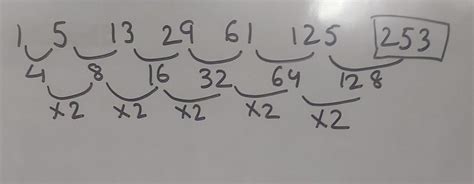 1 5 13 29 61 125 253
4 8 16 32 64 128
x2 x2 x2 x2 x2